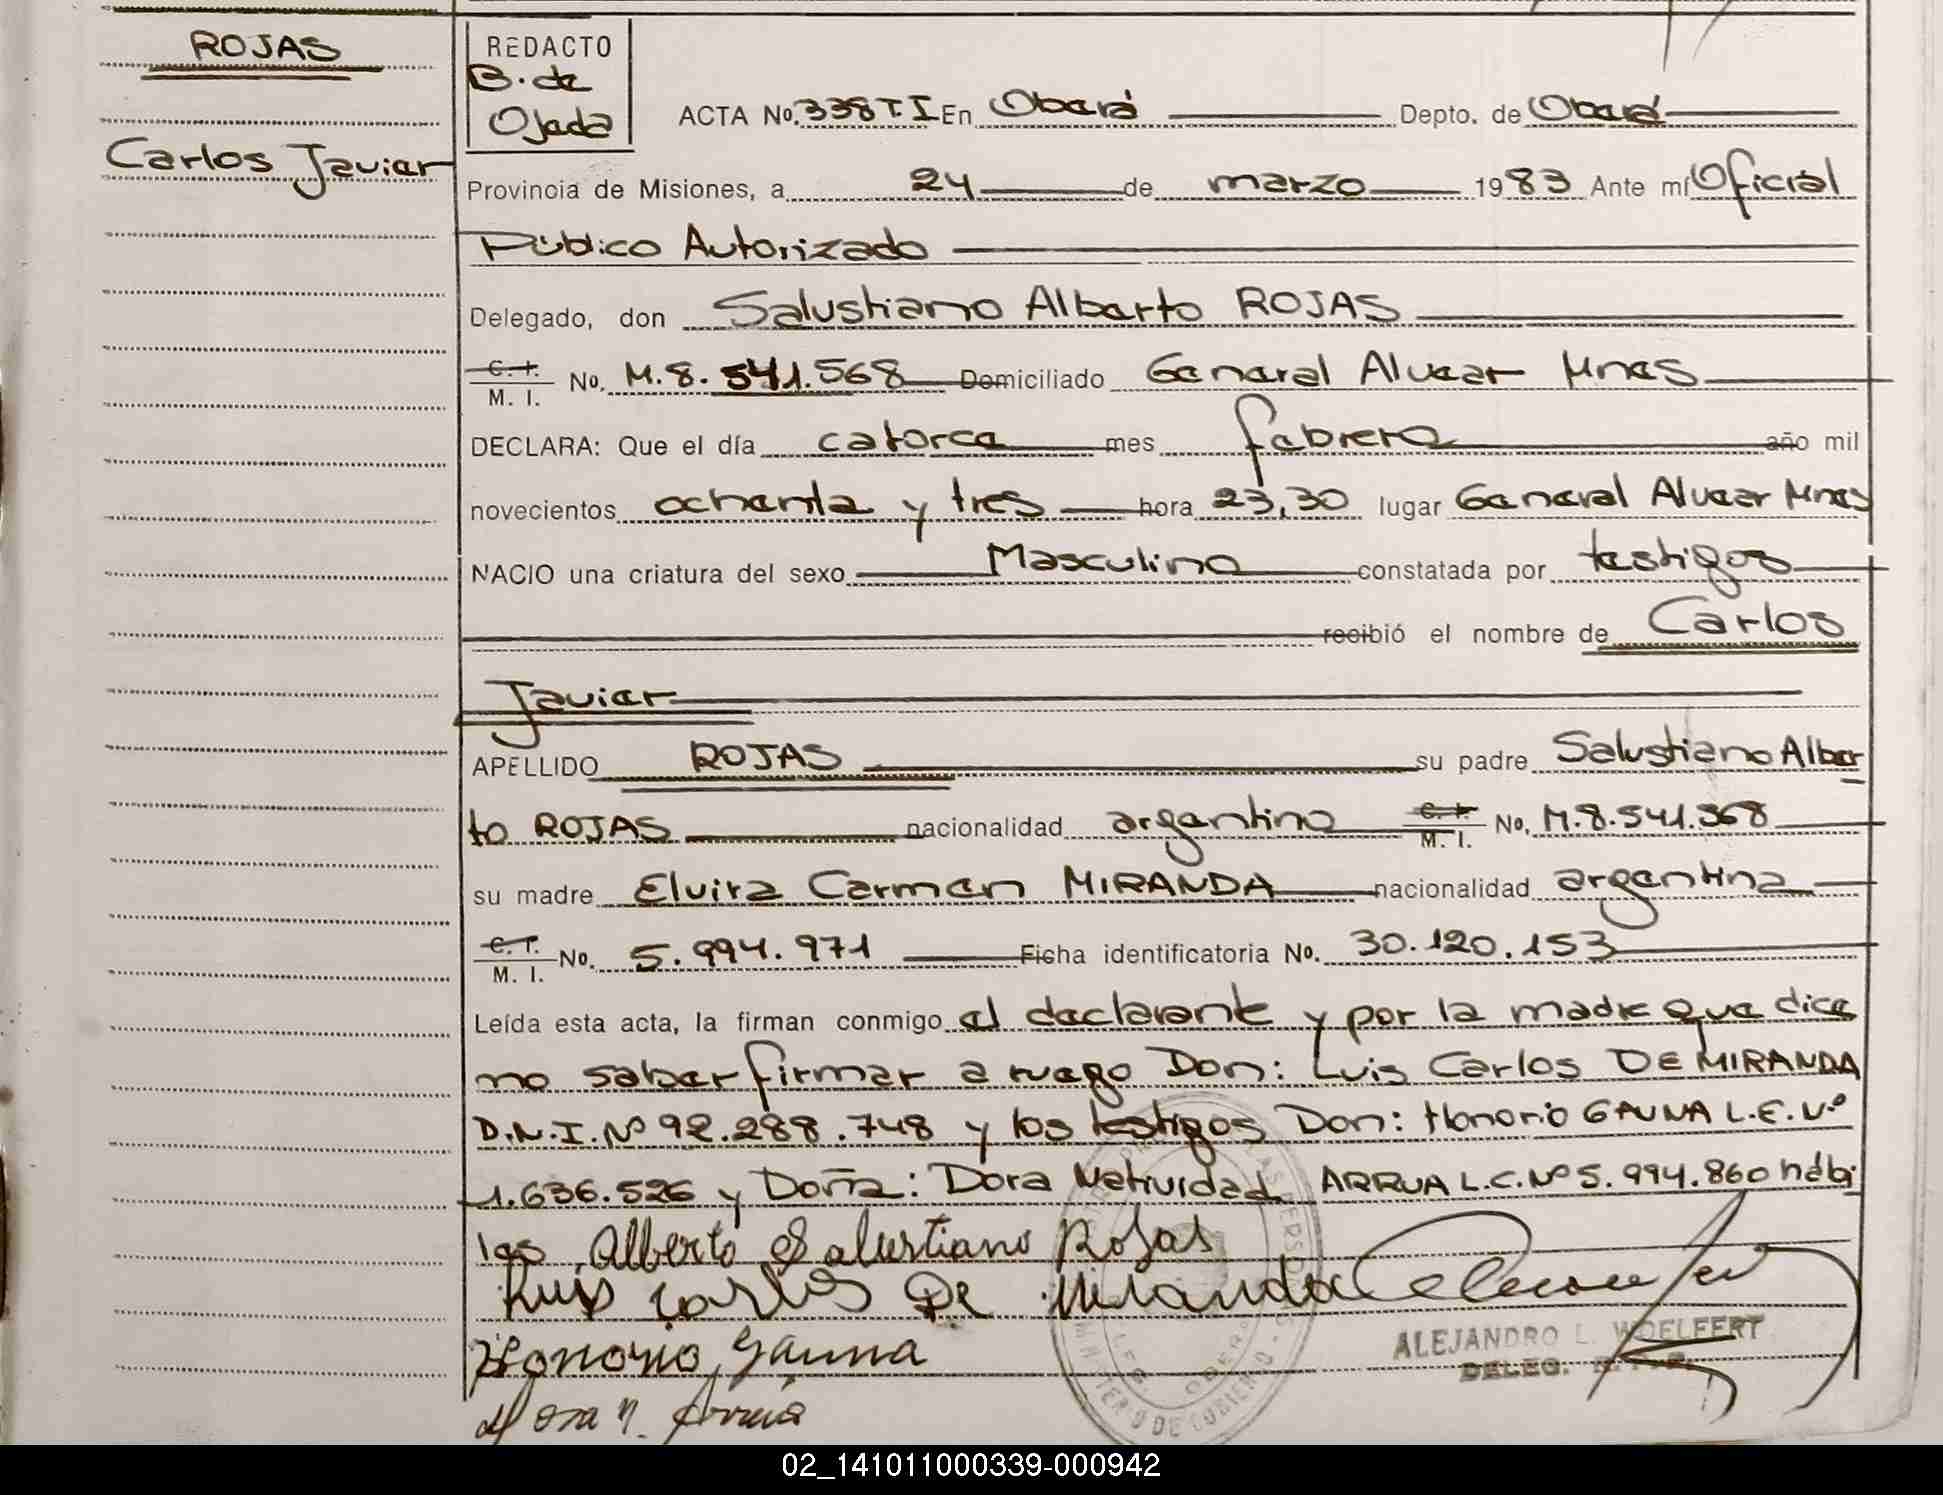 ROJAS
Carlos Javier
REDACTO
B. de
Ojeda
ACTA No. 338 T. I En Oberá Depto. de Oberá
Provincia de Misiones, a 24 de marzo 1983 Ante mí Oficial
Público Autorizado
Delegado, don Salustiano Alberto ROJAS
C. I.
M. I. No. M.8.541.568 Domiciliado General Alvear Mnes
DECLARA: Que el día catorce mes febrero año mil
novecientos ochenta y tres hora 23,30 lugar General Alvear Mnes
NACIO una criatura del sexo Masculino constatada por testigos
recibió el nombre de Carlos
Javier
APELLIDO ROJAS su padre Salustiano Alber
to ROJAS nacionalidad argentino C. I. M. I. No. M.8.541.568
su madre Elvira Carmen MIRANDA nacionalidad argentina
C. I.
M. I. No. 5.994.971 Ficha identificatoria No. 30.120.153
Leída esta acta, la firman conmigo el declarante y por la madre que dice
no saber firmar a ruego Don: Luis Carlos DE MIRANDA
D.N.I. Nº 92.288.748 y los testigos Don: Honorio GAUNA L.E. Nº
1.636.526 y Doña: Dora Natividad ARRUA L.C. Nº 5.994.860 hábi
les
Alberto Salustiano Rojas
Luis Carlos De Miranda
Honorio Gauna
ALEJANDRO L. WOELFERT
DELEG.
Dora N. Arrua
MINISTERIO DE GOBIERNO
02_141011000339-000942